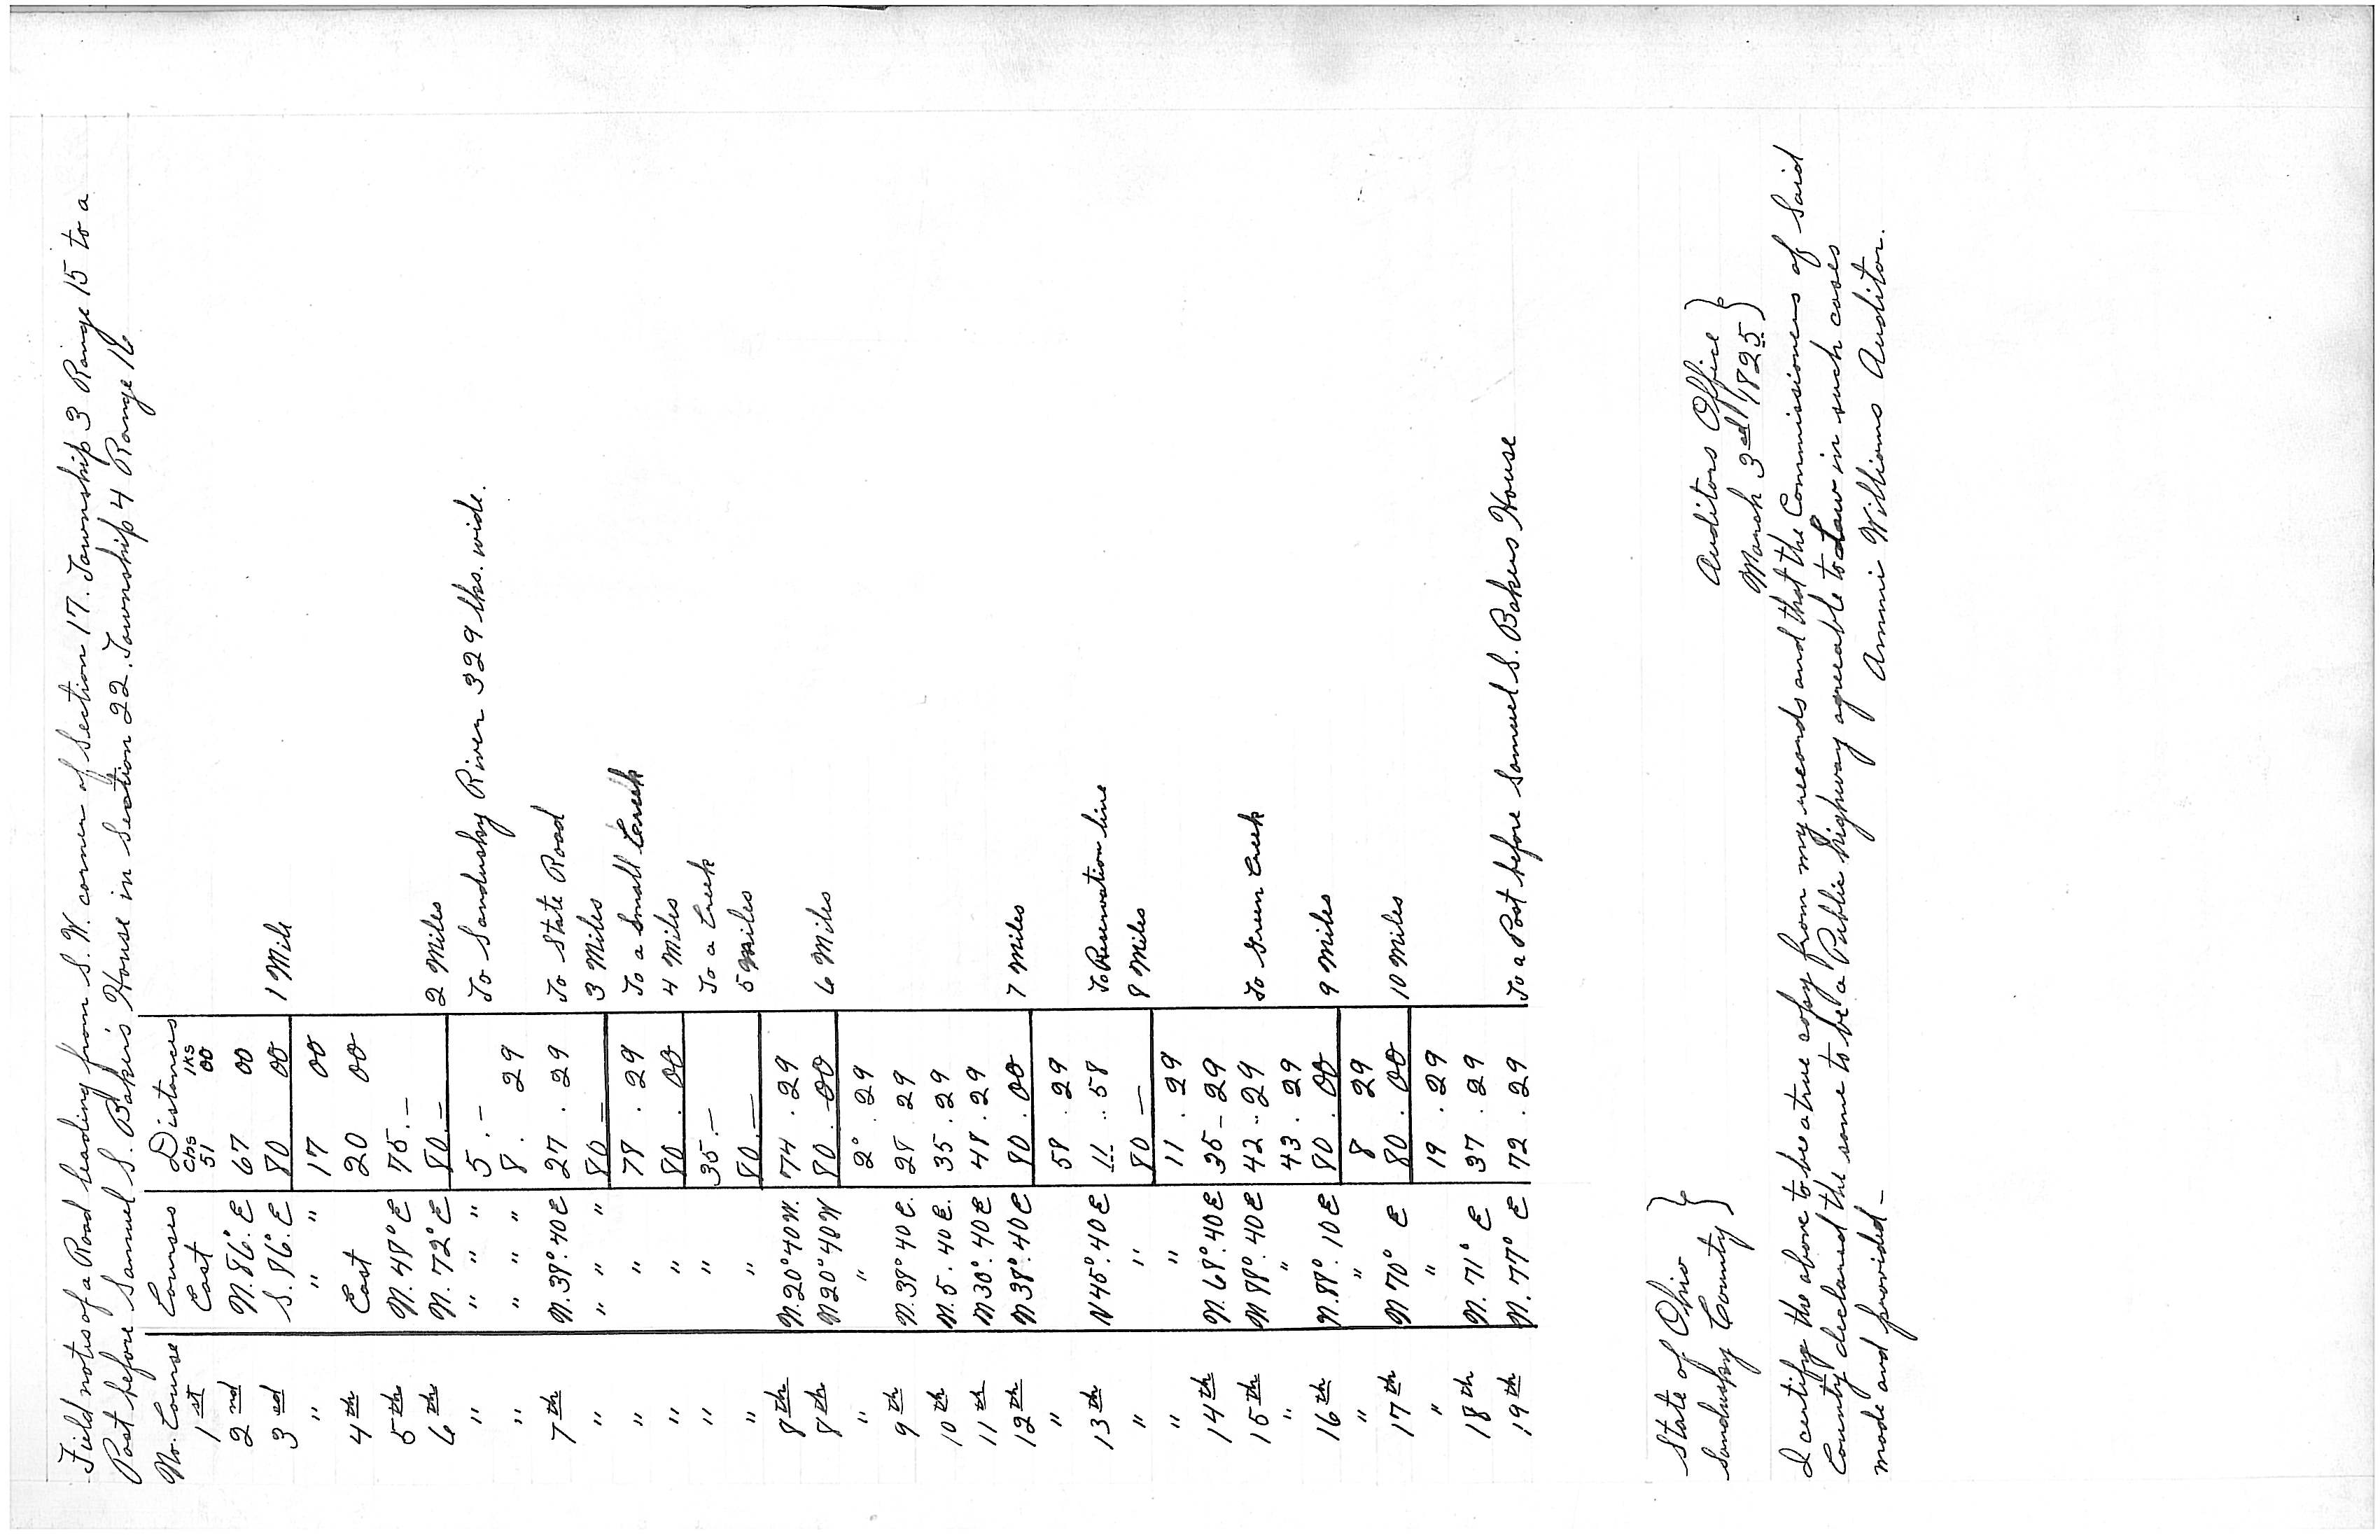 Field notes of a Road leading from S.W. corner of Section 17. Township 3 Range 15 to a
Post before Samuel S. Baker's House in Section 22. Township 4 Range 16
No. Course Courses Distances
Chs lks
1st East 51 00
2nd N. 86.° E 67 00
3rd S. 86.° E 80 00 1 Mile
" " " 17 00
4th East 20 00
5th N. 48° E 75.–
6th N. 72° E 80 – 2 Miles
" " " " 5.– To Sandusky River 329 lks. wide.
" " " " 8. 29
7th N. 38°. 40 E 27 . 29 To State Road
" " " " 80 – 3 Miles
" " 78 . 29 To a Small Creek
" " 80 . 00 4 Miles
" " 35.– To a Creek
" " 80.– 5 Miles
8th N. 20° 40 W. 74 . 29
8th N 20° 40 W 80 . 00 6 Miles
" " 2° . 29
9th N. 38° 40 E. 28 . 29
10th N. 5. 40 E. 35 . 29
11th N 30°. 40 E 48 . 29
12th N 38°. 40 E 80 . 00 7 Miles
" 58 . 29
13th N 45°. 40 E 11 .. 58 To Reservation line
" " 80 – 8 Miles
" " 11 . 29
14th N. 68°. 40 E 35 – 29
15th N 88°. 40 E 42 – 29 To Green Creek
" " 43 . 29
16th N. 88°. 10 E 80 . 00 9 Miles
" " 8 29
17th N 70° E 80 . 00 10 Miles
" " 19 . 29
18th N. 71° E 37 . 29
19th N. 77° E 72 . 29 To a Post before Samuel S. Bakers House
State of Ohio } Auditors Office }
Sandusky County } March 3rd 1825 }
I certify the above to be a true copy from my records and that the Commissioners of Said
County declared the same to be a Public highway agreable to Law in such cases
made and provided – Ammi Williams Auditor.